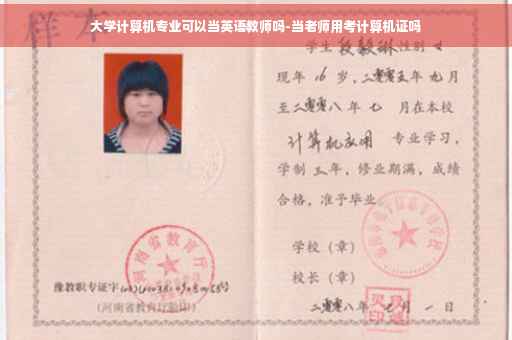 大学计算机专业可以当英语教师吗-当老师用考计算机证吗
样本
学生 段毅琳 性别 女
现年 16 岁，二零零五年 九月
至二零零八年 七 月在本校
计算机应用 专业学习，
学制 三 年，修业期满，成绩
合格，准予毕业
学校（章）
校长（章）
二零零八年 七 月 一 日
河南省教育厅
豫教职专证字
（河南省教育厅验印）